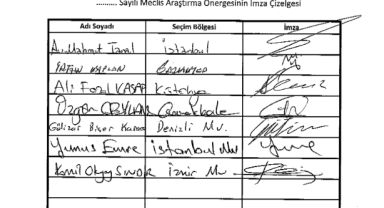 .......... Sayılı Meclis Araştırma Önergesinin İmza Çizelgesi
Adı Soyadı Seçim Bölgesi İmza
Av. Mahmut Tanal İstanbul
FATİH KAPLAN GAZİANTEP
Ali Fazıl KASAP Kütahya
Özgür CEYLAN Çanakkale
Gülizar Biçer Karaca Denizli Mv.
Yunus Emre İstanbul Mv
Kamil Okyay SINDIR İzmir Mv